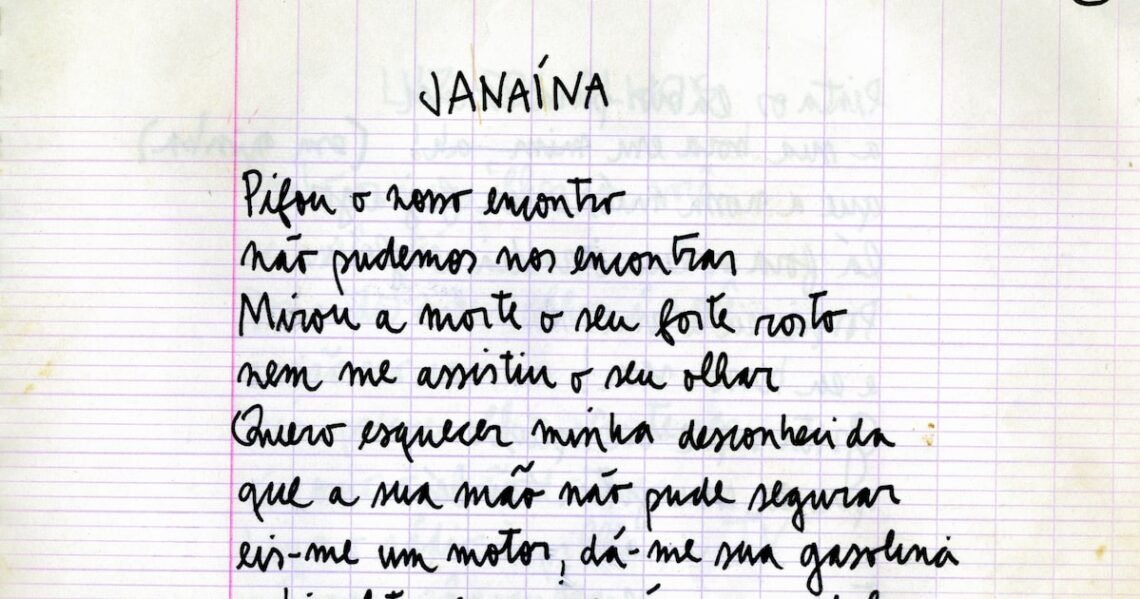 JANAÍNA
Pifou o nosso encontro
não pudemos nos encontrar
Mirou a morte o seu forte rosto
nem me assistiu o seu olhar
Quero esquecer minha desconhecida
que a sua mão não pude segurar
eis-me um motor, dá-me sua gasolina